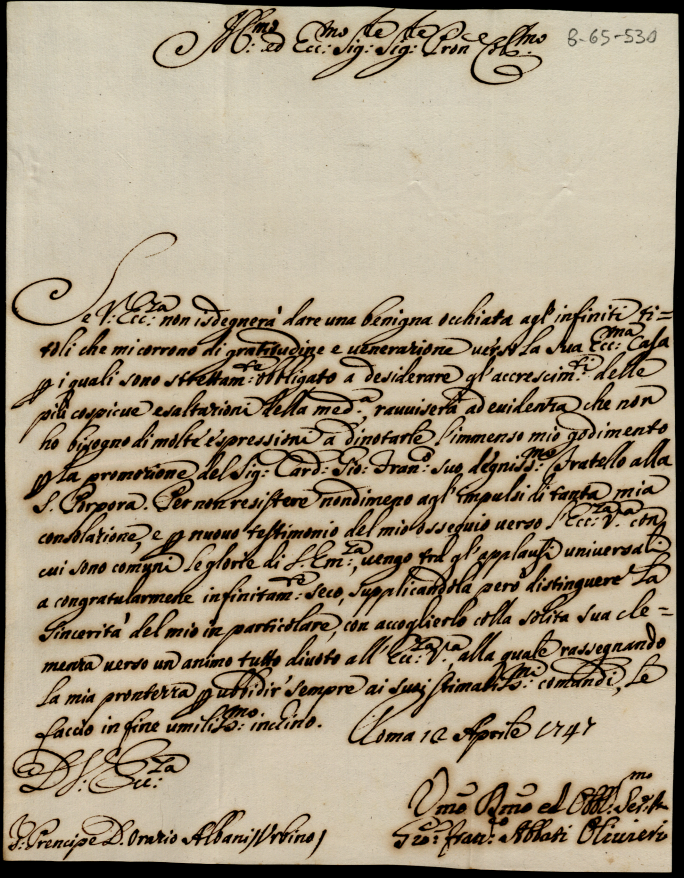 Ill:mo ed Ecc:mo Sig:re Sig:re Pron Col:mo
8-65-530
Se V: Ecc:za non isdegnerà dare una benigna occhiata agl'infiniti ti=
toli che mi corrono di gratitudine e venerazione verso la sua Ecc:ma Casa
p i quali sono strettam:te obbligato a desiderare gl'accrescim:ti delle
più cospicue esaltazioni della med:a, ravviserà ad evidenza che non
ho bisogno di molte espressioni a dinotarle l'immenso mio godimento
p la promozione del Sig: Card: Gio: Fran:o suo degniss:mo Fratello alla
S. Porpora. Per non resistere nondimeno agl'impulsi di tanta mia
consolazione, e p nuovo testimonio del mio ossequio verso l'Ecc:za V:a con
cui sono comuni le glorie di S. Em:za, vengo trà gl'applausi universali
a congratularmene infinitam:te seco, supplicandola però distinguere la
sincerità del mio in particolare, con accoglierlo colla solita sua cle=
menza verso un animo tutto divoto all'Ecc:za V:a, alla quale rassegnando
la mia prontezza p ubbidir sempre ai suoi stimatiss:mi comandi, le
faccio in fine umiliss:mo inchino. Roma 12 Aprile 1747
D. V. Ecc:za
Vmo Dmo ed Obbl:mo Ser:re
S: Prencipe D. Orazio Albani / Urbino /
Gio: Fran:co Abbati Olivieri